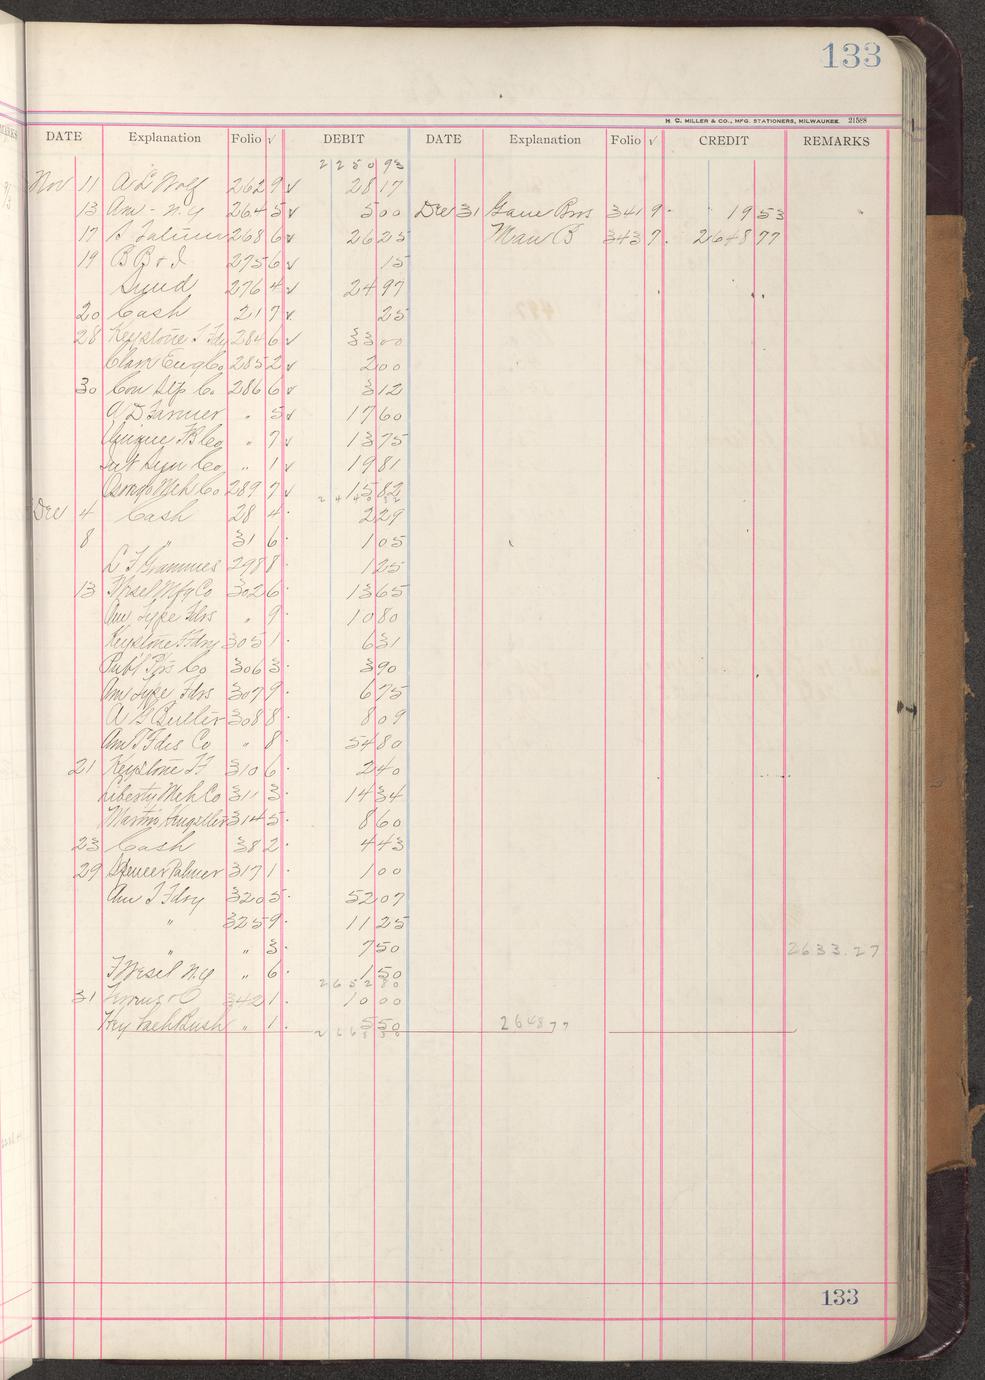 133
H. C. MILLER & CO., MFG. STATIONERS, MILWAUKEE. 21588
DATE Explanation Folio √ DEBIT DATE Explanation Folio √ CREDIT REMARKS
2250 93
Nov 11 A L Wolf 262 9 √ 28 17
13 Am - N.Y 264 5 √ 5 00 Dec 31 Gane Bros 341 9 19 53
17 268 6 √ 26 25 343 7 2648 77
19 B B & I 275 6 √ 15
Sund 276 4 √ 24 97
20 Cash 21 7 √ 25
28 Keystone T Fdy 284 6 √ 33 00
Eng Co 285 2 √ 2 00
30 Con Co 286 6 √ 3 12
A D Farmer " 5 √ 17 60
Unique Co " 7 √ 13 75
Co " 1 √ 19 81
Oswego Mch Co 289 7 √ 15 82
2440 32
Dec 4 Cash 28 4 2 29
8 " 31 6 1 05
L F Grammes 298 8 1 25
13 F Wesel Mfg Co 302 6 13 65
Am Type Fdrs " 9 10 80
Keystone T Fdry 305 1 6 31
Co 306 3 3 90
Am Type Fdrs 307 9 6 75
A G 308 8 8 09
Am T Fdrs Co " 8 54 80
21 Keystone T F 310 6 2 40
Liberty Mch Co 311 3 14 34
314 5 8 60
23 Cash 38 2 4 43
29 Spencer Palmer 317 1 1 00
Am T Fdry 320 5 52 07
" 325 9 11 25
" " 3 7 50 2633.27
F Wesel N.Y " 6 1 50
2652 80
31 342 1 10 00
Hy Bush " 1 5 50 2648 77
133